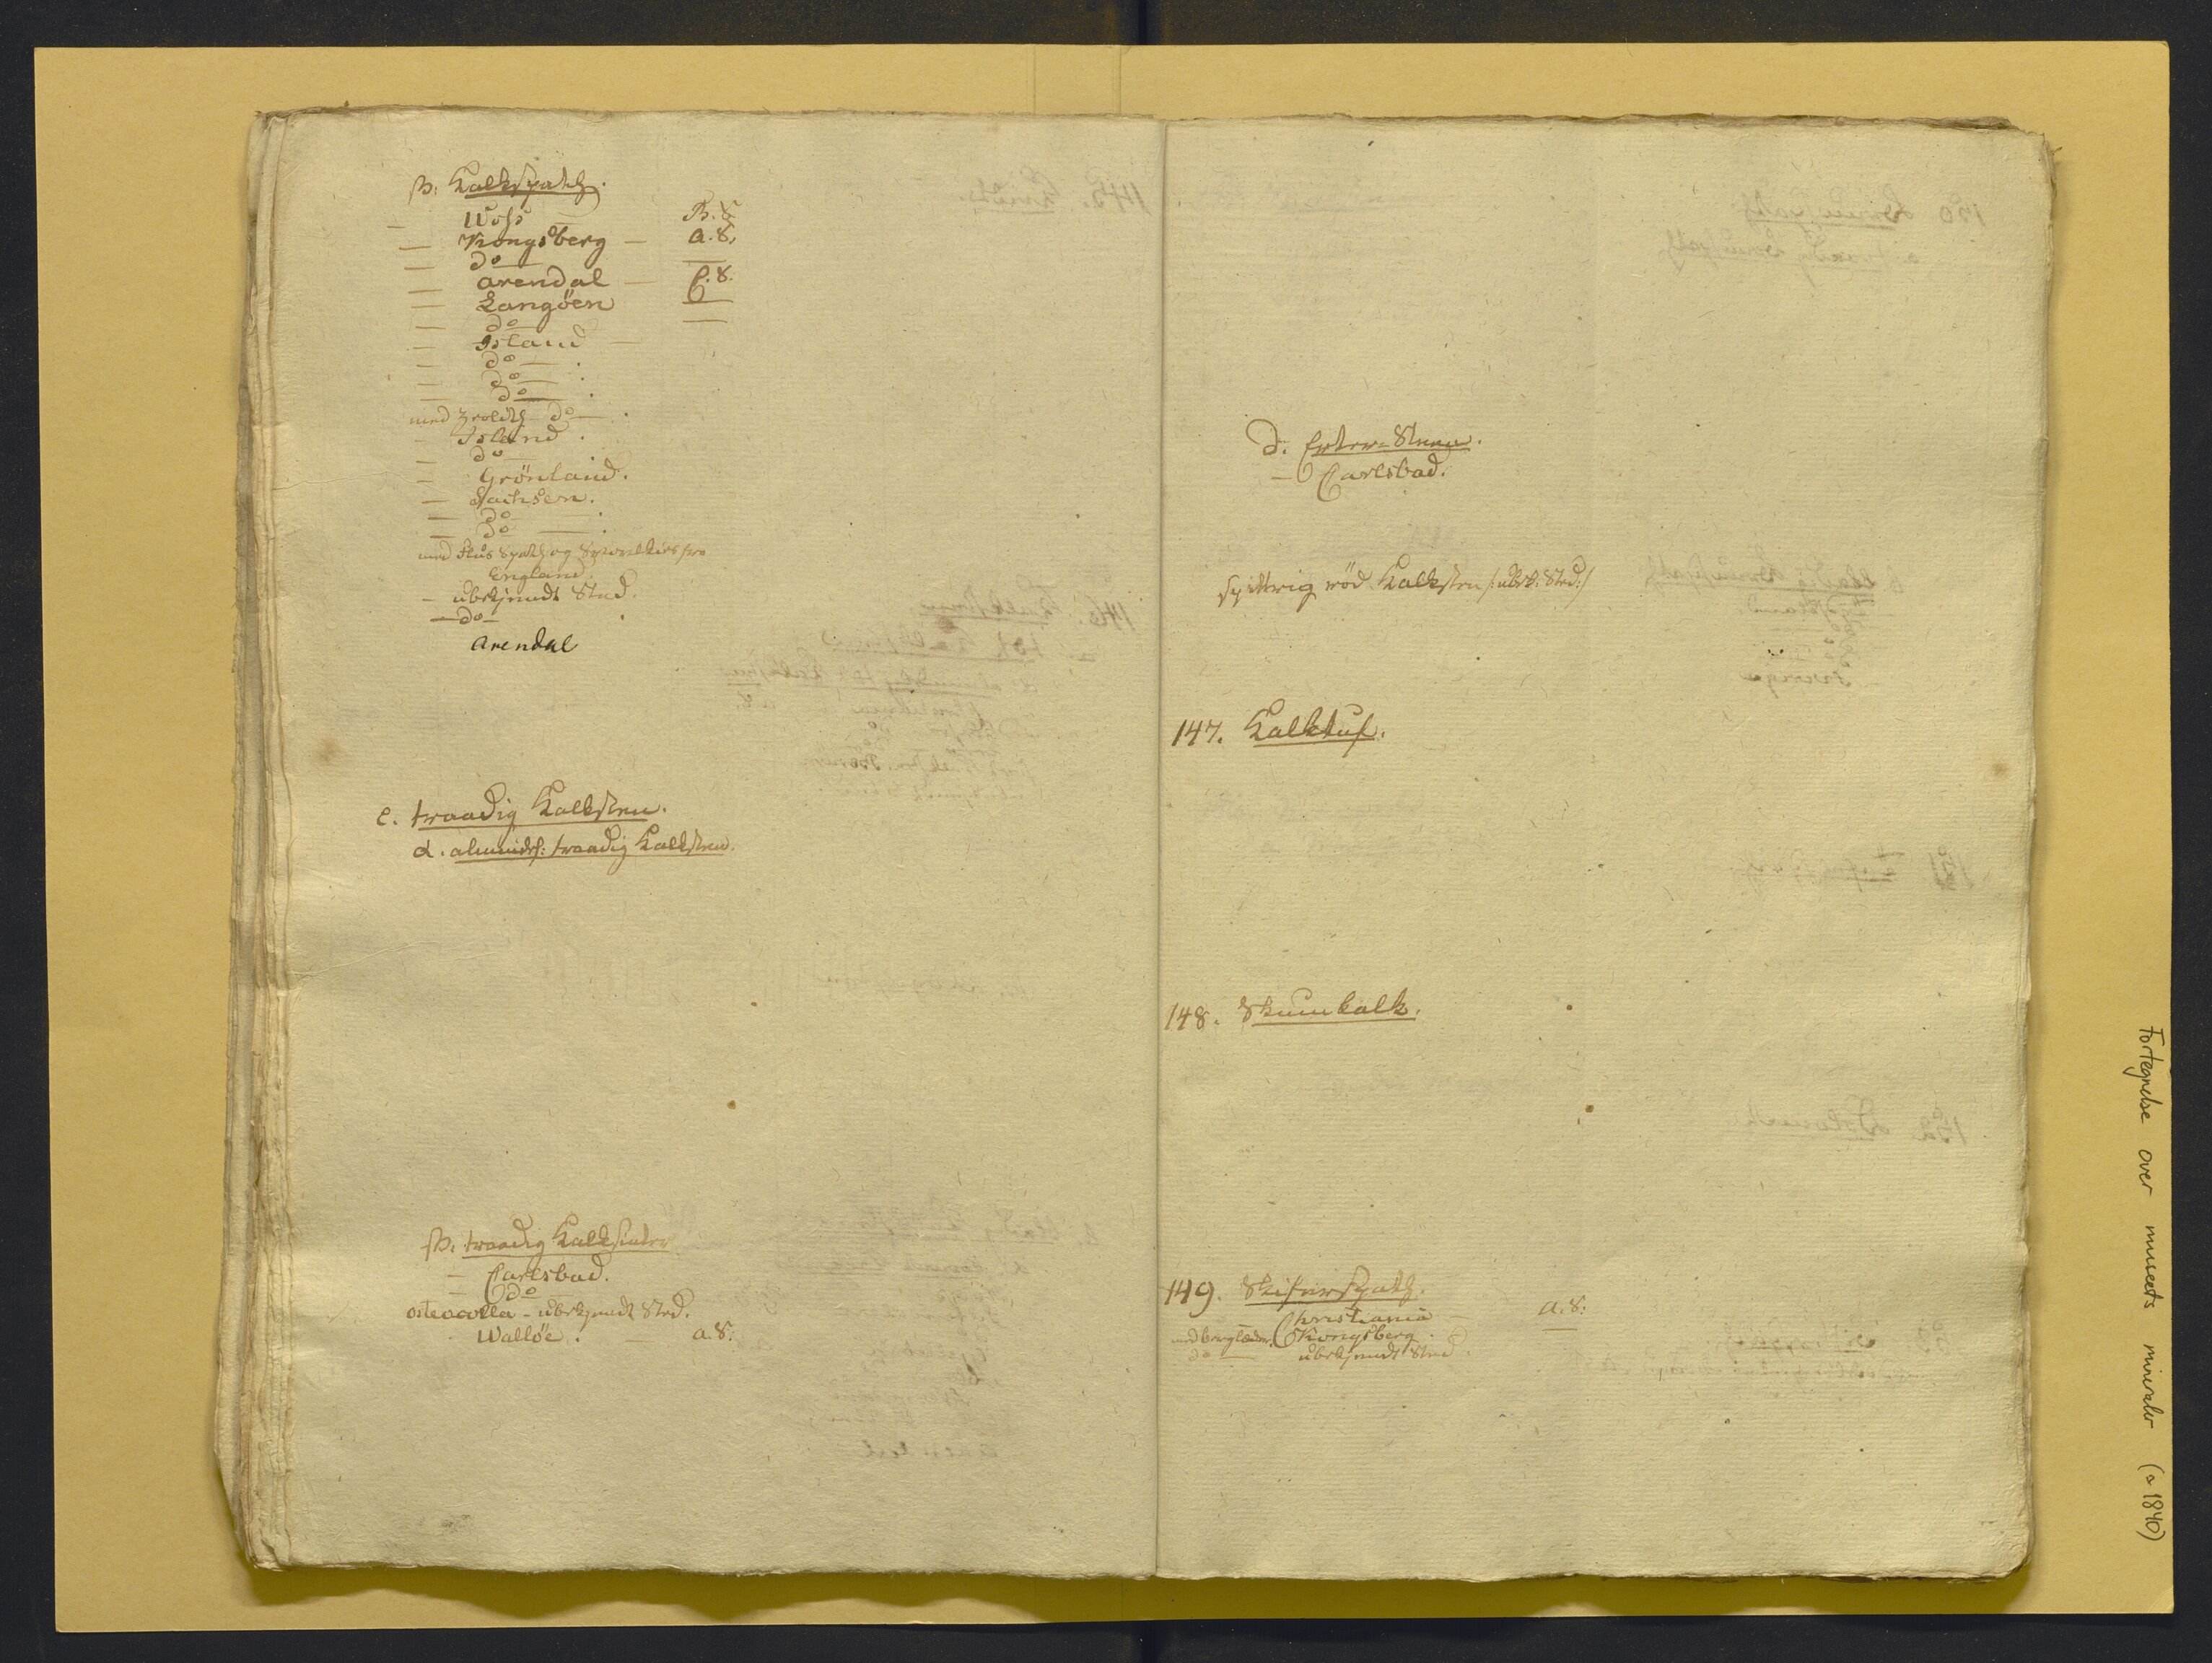 β. Kalkspath.
— Woss — B. 8
— Kongsberg — a. 8.
— do —
— Arendal — C. 8.
— Langöen —
— do —
— Island —
— do — .
— do — .
— do — .
med Zeolith do — .
— Island .
— do — .
— Grönland.
— Sachsen.
— do — .
— do — .
med Flus Spath og Svovelkies fra
England.
— ubekjendt Sted.
— do — .
Arendal
c. traadig Kalksten.
α. almindel: traadig Kalksten.
β. traadig Kalksinter
— Carlsbad.
— do
osteocolla - ubekjendt Sted.
Walløe . — a. 8.
d. Erter-Steen.
— Carlsbad.
splittrig röd Kalksten /: ubek: Sted :/
147. Kalktuf.
148. Skumkalk.
149. Skiferspath.
Christiania — a. 8.
med bergläder. Kongsberg . —
do — ubekjendt Sted .
Fortegnelse over museets mineraler (ca 1840)